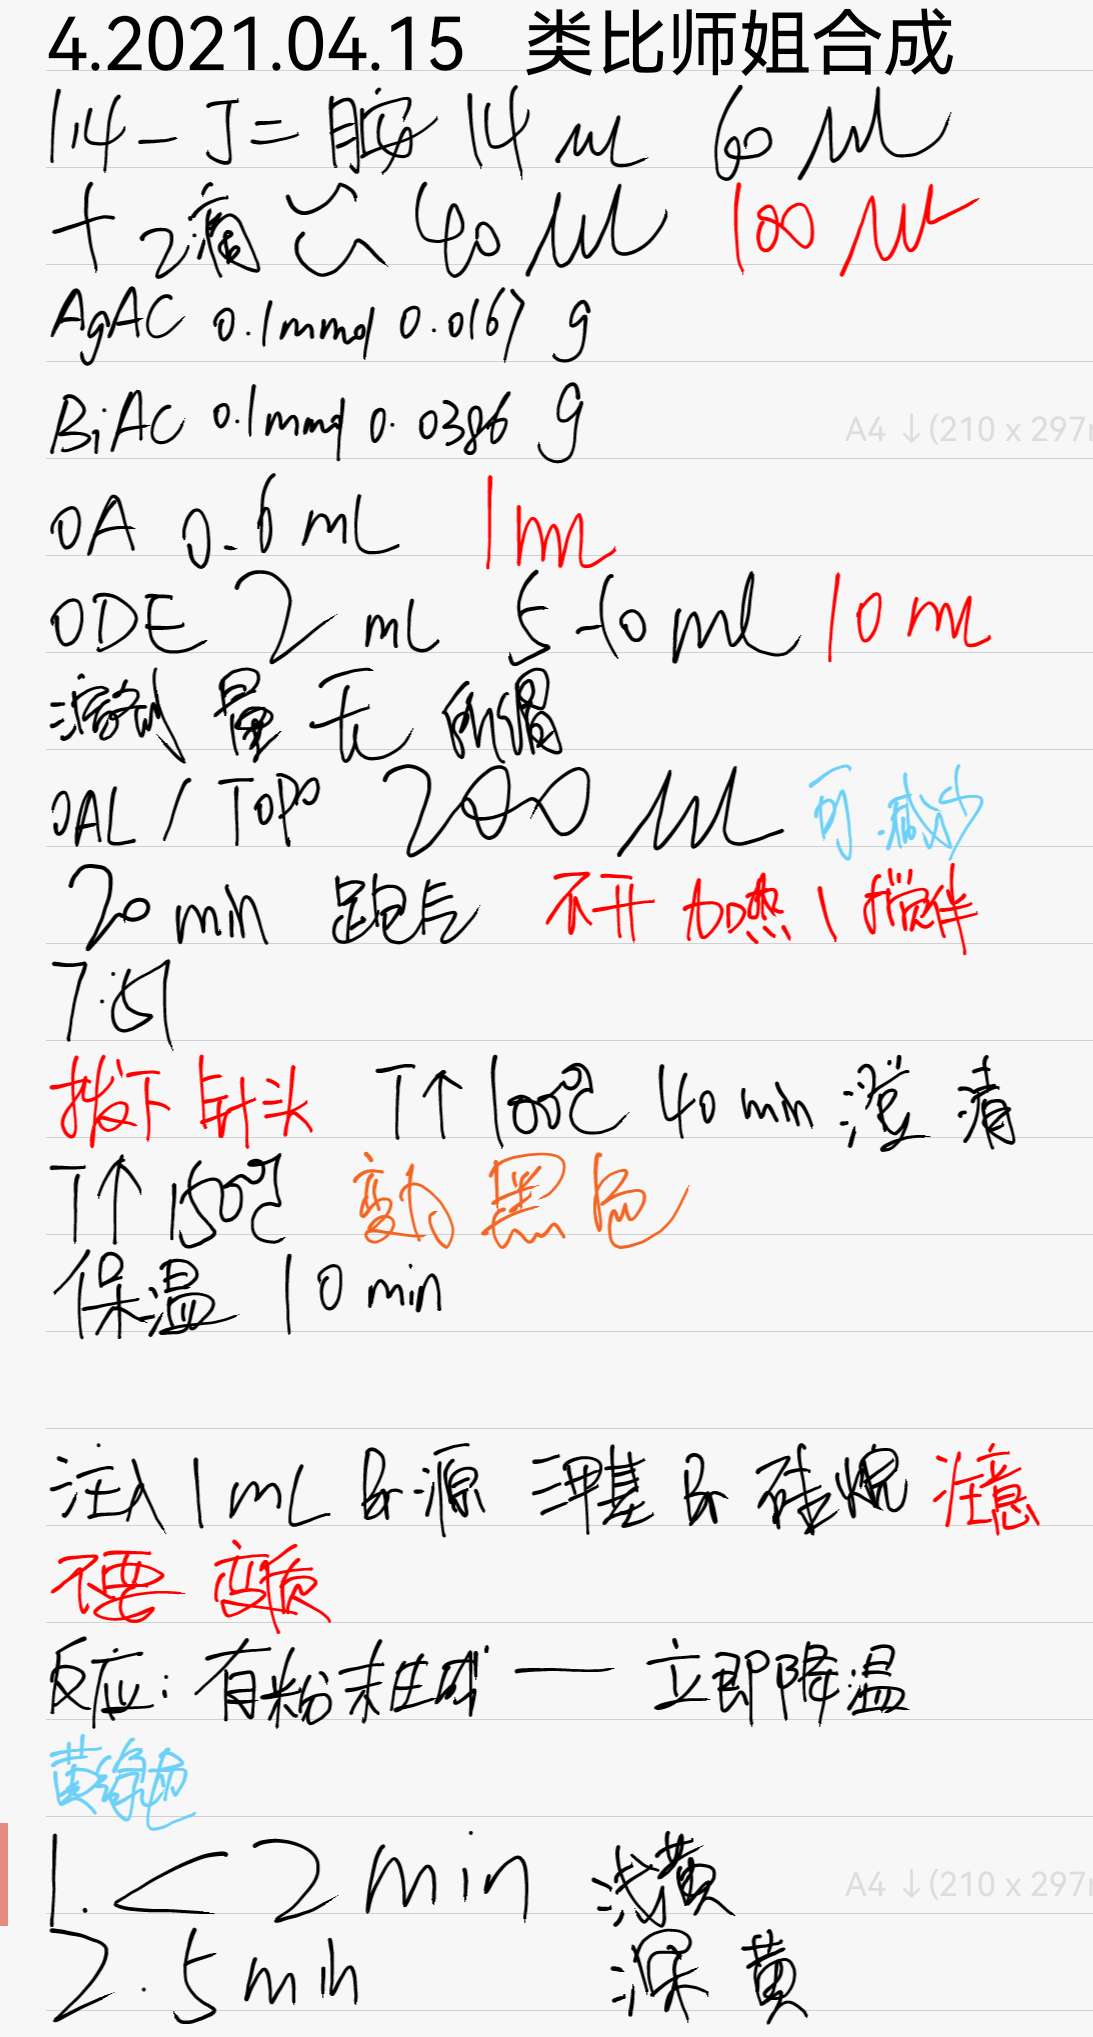 4.2021.04.15 类比师姐合成
1,4-丁二胺 14 μL 60 μL
+ 2滴 ≈ 40 μL 100 μL
AgAC 0.1mmol 0.0167 g
BiAC 0.1mmol 0.0386 g
A4 ↓(210 x 297
OA 0.6 mL 1mL
ODE 2 mL 5-10 mL 10 mL
溶剂 量 无 所谓
OAL / TOPO 200 μL 可减少
20 min 跑气 不开 加热、搅拌
7:51
拔下针头 T↑ 100℃ 40 min 澄 清
T↑ 150℃ 变为 黑 色
保温 10 min
注入 1 mL Br源 三甲基 Br 硅烷 注意
不要 变质
反应: 有粉末生成 — 立即降温
黄绿色
1. < 2 min 浅黄
A4 ↓(210 x 297
2. 5 min 深 黄